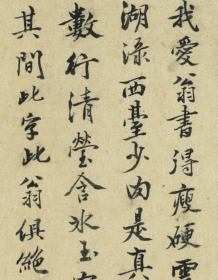 我愛翁書得瘦硬雲
湖淥西臺少肉是真
數行清瑩含冰玉
其間此字此翁俱絕